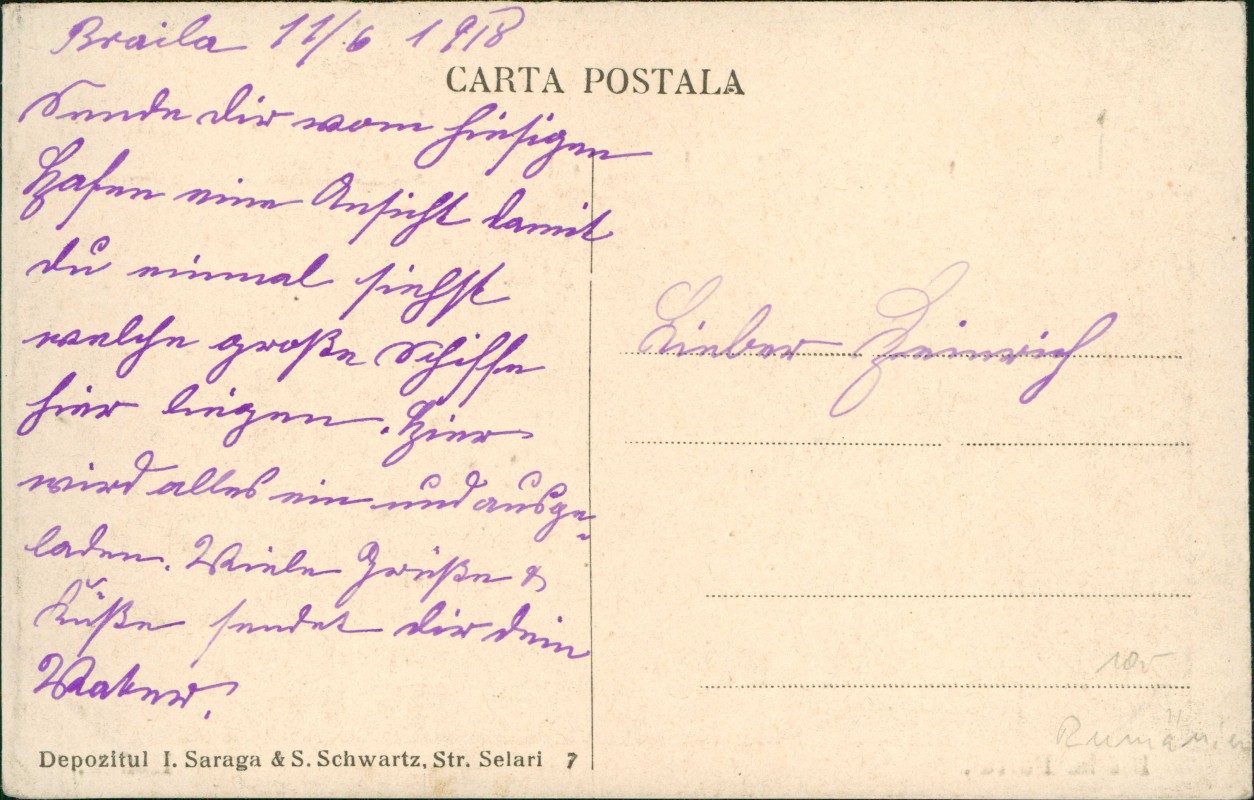 Braila 11/6 1918
CARTA POSTALA
Sende dir vom hiesigen
Hafen eine Ansicht damit
du einmal siehst
welche große Schiffe
hier liegen. Hier
wird alles ein und ausge-
laden. Viele Grüße &
Küße sendet dir dein
Vater.
Lieber Heinrich
105
Rumänien
Depozitul I. Saraga & S. Schwartz, Str. Selari 7